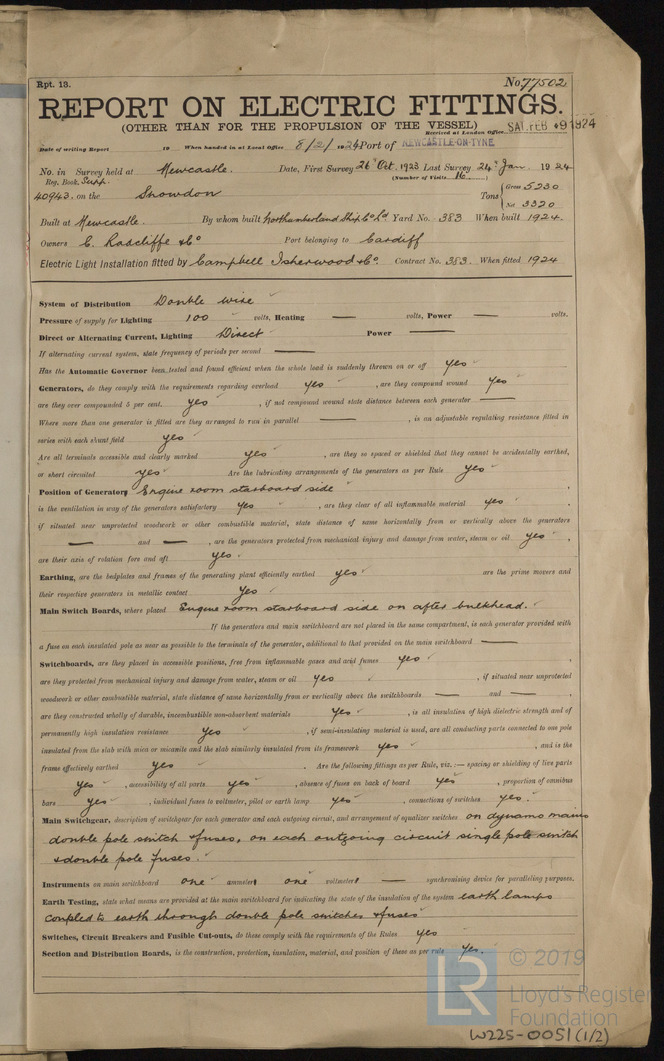 Rpt. 13.
No. 77502
REPORT ON ELECTRIC FITTINGS.
(OTHER THAN FOR THE PROPULSION OF THE VESSEL)
Received at London Office SAT. FEB 9 1924
Date of writing Report 19 When handed in at Local Office 8/2/1924 Port of NEWCASTLE-ON-TYNE
No. in Survey held at Newcastle. Date, First Survey 26th Oct. 1923 Last Survey 24th Jan. 1924
Reg. Book. Supp. (Number of Visits 16)
40943. on the Snowdon Tons { Gross 5230
Net 3320
Built at Newcastle. By whom built Northumberland Ship Co Ld Yard No. 383 When built 1924.
Owners C. Radcliffe & Co Port belonging to Cardiff
Electric Light Installation fitted by Campbell Isherwood & Co. Contract No. 383. When fitted 1924
System of Distribution Double wire
Pressure of supply for Lighting 100 volts, Heating — volts, Power — volts.
Direct or Alternating Current, Lighting Direct Power —
If alternating current system, state frequency of periods per second —
Has the Automatic Governor been tested and found efficient when the whole load is suddenly thrown on or off yes
Generators, do they comply with the requirements regarding overload yes , are they compound wound yes
are they over compounded 5 per cent. yes , if not compound wound state distance between each generator —
Where more than one generator is fitted are they arranged to run in parallel — , is an adjustable regulating resistance fitted in
series with each shunt field yes
Are all terminals accessible and clearly marked yes , are they so spaced or shielded that they cannot be accidentally earthed,
or short circuited yes Are the lubricating arrangements of the generators as per Rule yes
Position of Generators Engine room starboard side
is the ventilation in way of the generators satisfactory yes , are they clear of all inflammable material yes ,
if situated near unprotected woodwork or other combustible material, state distance of same horizontally from or vertically above the generators
— and — , are the generators protected from mechanical injury and damage from water, steam or oil yes ,
are their axis of rotation fore and aft yes.
Earthing, are the bedplates and frames of the generating plant efficiently earthed yes are the prime movers and
their respective generators in metallic contact yes
Main Switch Boards, where placed Engine room starboard side on after bulkhead.
If the generators and main switchboard are not placed in the same compartment, is each generator provided with
a fuse on each insulated pole as near as possible to the terminals of the generator, additional to that provided on the main switchboard —
Switchboards, are they placed in accessible positions, free from inflammable gases and acid fumes yes ,
are they protected from mechanical injury and damage from water, steam or oil yes , if situated near unprotected
woodwork or other combustible material, state distance of same horizontally from or vertically above the switchboards — and — ,
are they constructed wholly of durable, incombustible non-absorbent materials yes , is all insulation of high dielectric strength and of
permanently high insulation resistance yes , if semi-insulating material is used, are all conducting parts connected to one pole
insulated from the slab with mica or micanite and the slab similarly insulated from its framework yes , and is the
frame effectively earthed yes . Are the following fittings as per Rule, viz. :— spacing or shielding of live parts
yes , accessibility of all parts yes , absence of fuses on back of board yes , proportion of omnibus
bars yes , individual fuses to voltmeter, pilot or earth lamp yes , connections of switches yes.
Main Switchgear, description of switchgear for each generator and each outgoing circuit, and arrangement of equalizer switches on dynamo mains
double pole switch & fuses, on each outgoing circuit single pole switch
& double pole fuses.
Instruments on main switchboard one ammeters one voltmeters — synchronising device for paralleling purposes.
Earth Testing, state what means are provided at the main switchboard for indicating the state of the insulation of the system earth lamps
coupled to earth through double pole switches & fuses
Switches, Circuit Breakers and Fusible Cut-outs, do these comply with the requirements of the Rules yes
Section and Distribution Boards, is the construction, protection, insulation, material, and position of these as per rule yes.
LR
© 2019
Lloyd's Register
Foundation
W225-0051(1/2)